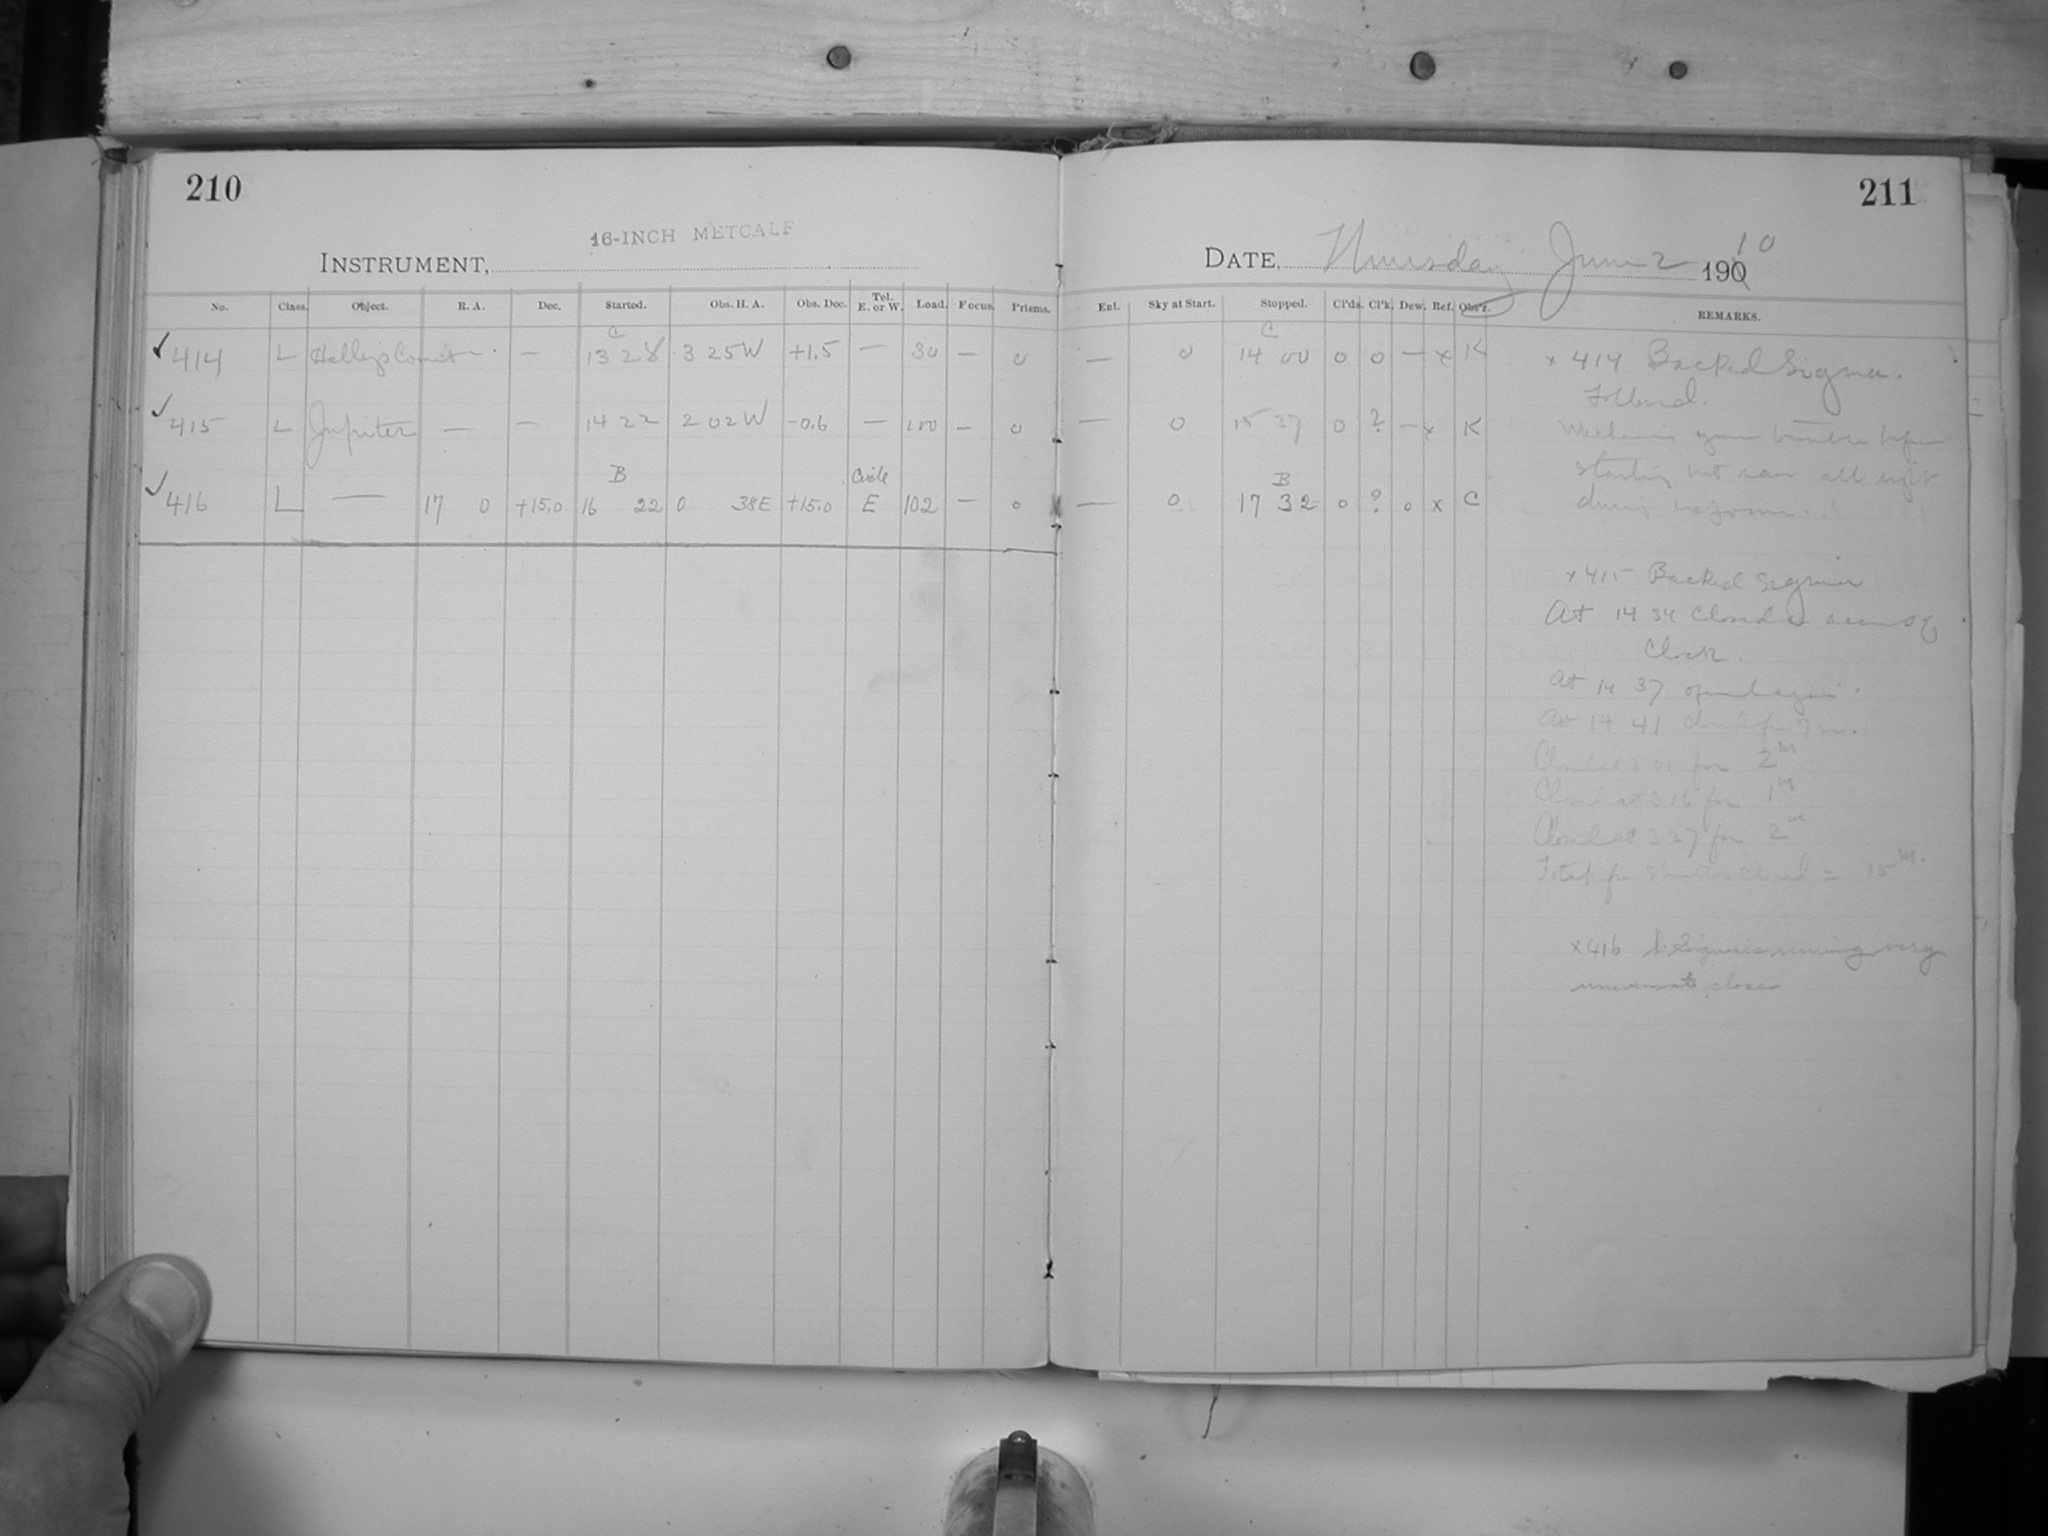 210
16-INCH METCALF
INSTRUMENT,
No. Class. Object. R. A. Dec. Started. Obs. H. A. Obs. Dec. Tel. E. or W. Load. Focus. Prisms.
C
414 L Halley's Comet — — 13 28 3 25 W +1.5 — 30 — 0
415 L Jupiter — — 14 22 2 02 W -0.6 — 100 — 0
B Circle
416 L — 17 0 +15.0 16 22 0 38 E +15.0 E 102 — 0
211
DATE, Thursday June 2 1910
Enl. Sky at Start. Stopped. Cl'ds. Cl'k. Dew. Ref. Obs'r. REMARKS.
C
— 0 14 00 0 0 — x K
— 0 15 37 0 ? — x K
B
— 0 17 32 0 ? 0 x C
x 414 Backed Sigma.
Followed.
starting but ran all right
during
x 415 Backed Sigma
At 14 34 Closed on account of
Clock.
At 14 37 opened again.
At 14 41 closed for 7 m.
Closed at 3 01 for 2 m
Closed at 3 16 for 1 m
Closed at 3 27 for 2 m
Total for shutter closed = 15 m.
x 416 Signals running very
uneven at close